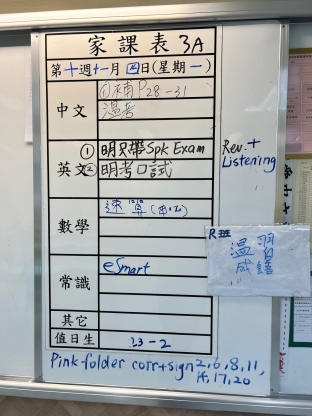 家課表 3A
第十週十一月四日(星期一)
中文
①補P28-31
溫書
英文
①明只帶Spk Exam
②明考口試
Rev. +
Listening
數學
速算
常識
eSmart
其它
值日生
23-2
R班
溫習
成語
Pink folder corr+sign 2,6,8,11,
14,17,20